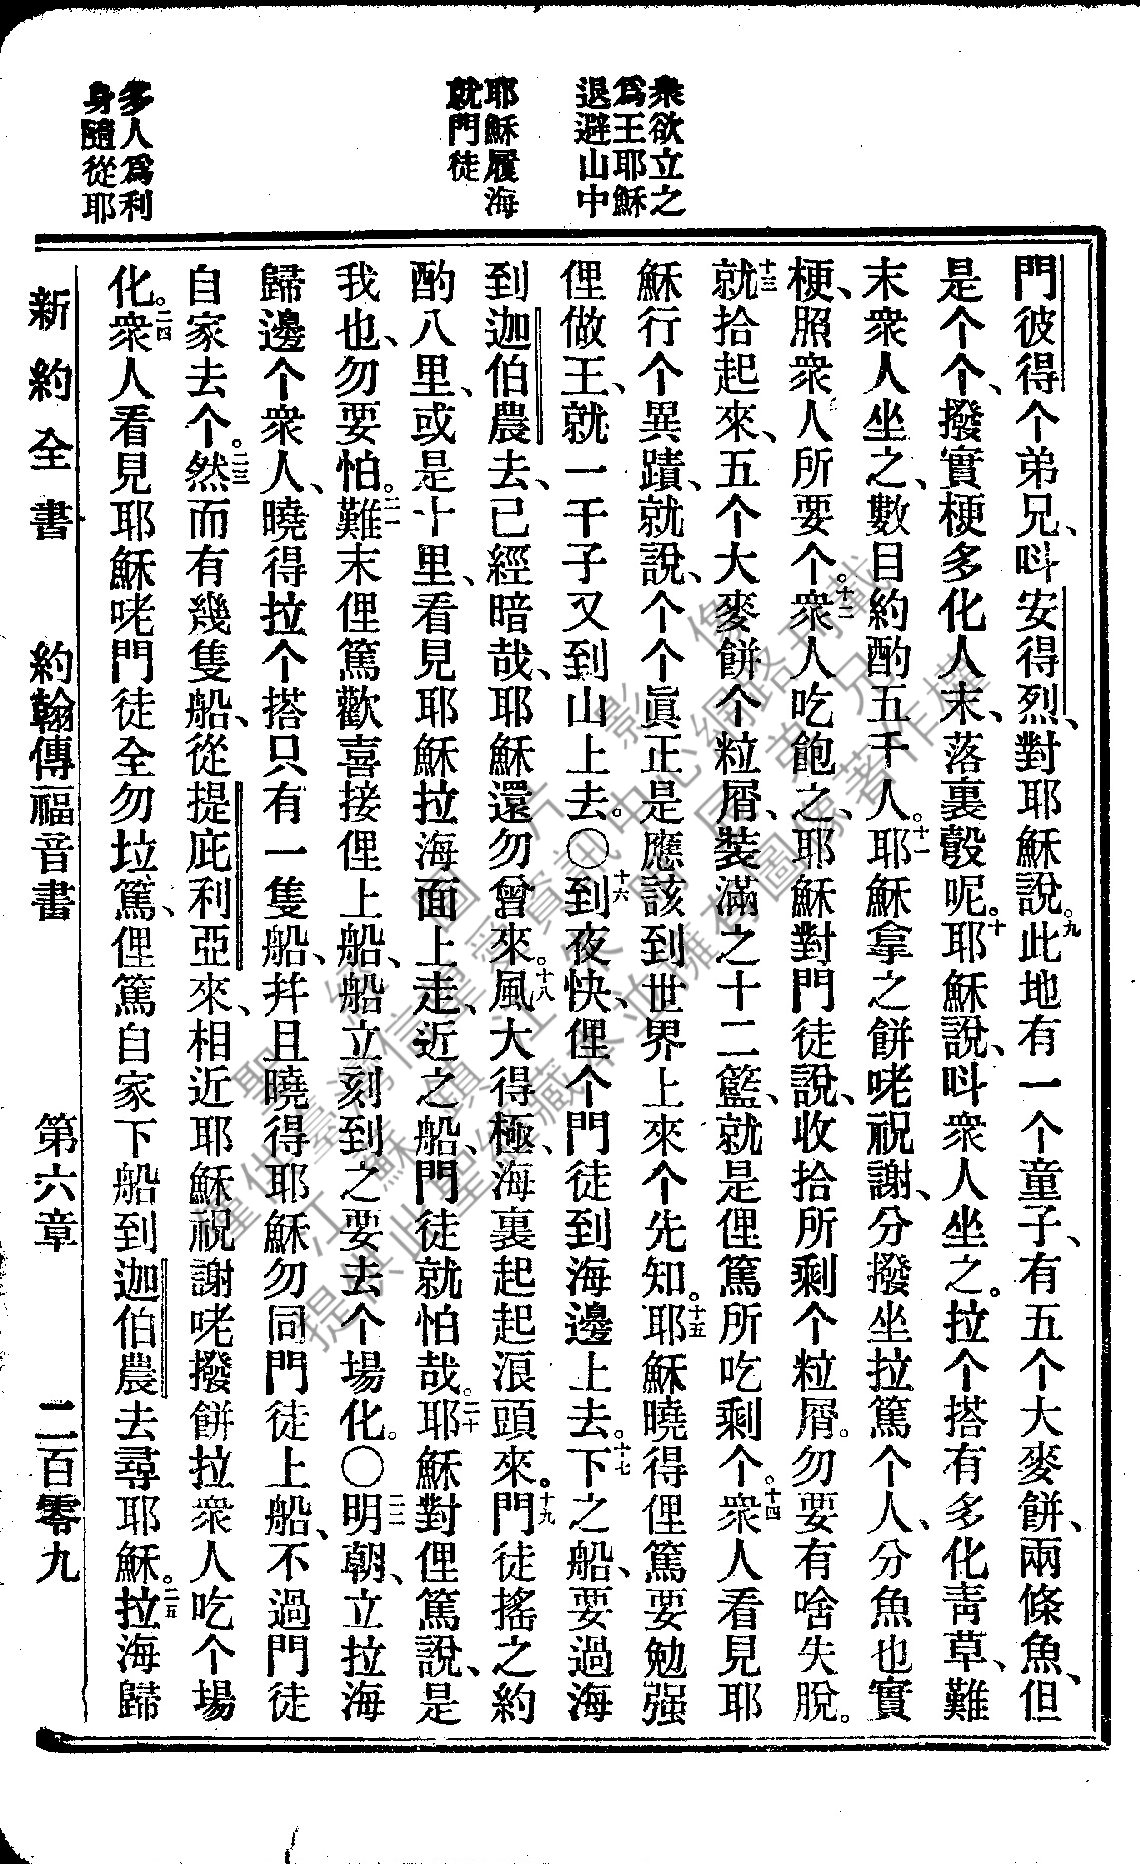 衆欲立之
爲王耶穌
退避山中
耶穌履海
就門徒
多人爲利
身隨從耶
門彼得个弟兄、呌安得烈、對耶穌說。九此地有一个童子、有五个大麥餅、兩條魚、但
是个个、撥實梗多化人末、落裏彀呢。十耶穌說、呌衆人坐之。拉个搭有多化靑草、難
末衆人坐之、數目約酌五千人。十一耶穌拿之餅咾祝謝、分撥坐拉篤个人、分魚也實
梗、照衆人所要个。十二衆人吃飽之、耶穌對門徒說、收拾所剩个粒屑。勿要有啥失脫。
十三就拾起來、五个大麥餅个粒屑、裝滿之十二籃、就是俚篤所吃剩个。十四衆人看見耶
穌行个異蹟、就說、个个眞正是應該到世界上來个先知。十五耶穌曉得俚篤要勉强
俚做王、就一干子又到山上去。〇十六到夜快、俚个門徒到海邊上去。十七下之船、要過海
到迦伯農去、已經暗哉、耶穌還勿曾來。十八風大得極、海裏起起浪頭來。十九門徒搖之約
酌八里、或是十里、看見耶穌拉海面上走、近之船、門徒就怕哉。二十耶穌對俚篤說、是
我也、勿要怕。二一難末俚篤歡喜接俚上船、船立刻到之要去个場化。〇二二明朝、立拉海
歸邊个衆人、曉得拉个搭只有一隻船、幷且曉得耶穌勿同門徒上船、不過門徒
自家去个。二三然而有幾隻船、從提庇利亞來、相近耶穌祝謝咾撥餅拉衆人吃个場
化。二四衆人看見耶穌咾門徒全勿垃篤、俚篤自家下船到迦伯農去尋耶穌。二五拉海歸
新約全書　約翰傳福音書　第六章　二百零九